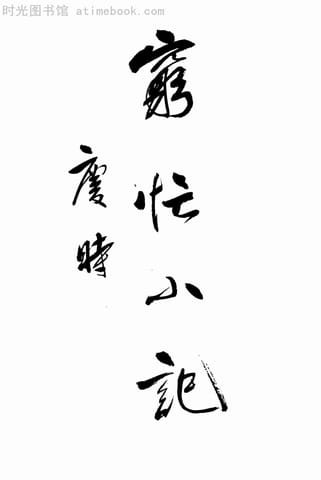 时光图书馆 atimebook.com
窮忙小記
慶時